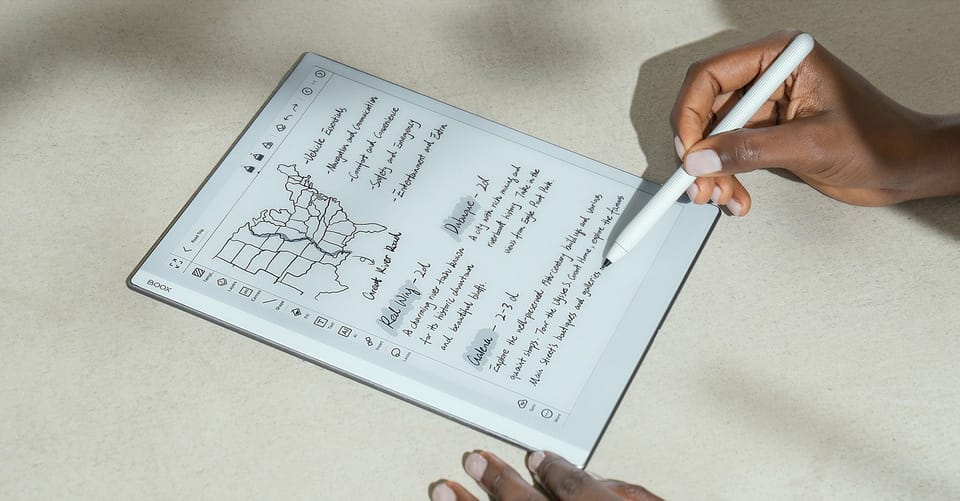 BOOX
Road Trip
- Vehicle Essentials
- Navigation and Communication
- Comfort and Convenience
- Safety and Emergency
- Entertainment and Extra
Great River Road
Red Wing - 2d
A charming river town known
for its historic downtown
and beautiful bluffs.
Dubuque - 2d
A city with rich mining and
riverboat history. Take in the
views from Eagle Point Park
Galena - 2-3 d
Explore the well-preserved 19th-century buildings and various
quaint shops. Tour the Ulysses S. Grant Home, explore the famous
Main Street's boutiques and galleries
More